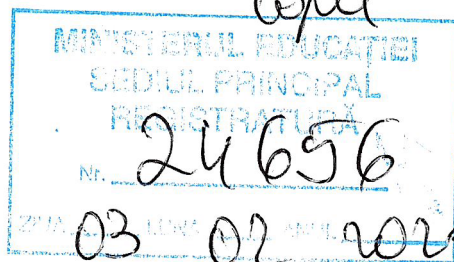 MINISTERUL EDUCAȚIEI
SEDIUL PRINCIPAL
REGISTRATURĂ
Nr. 24656
ZIUA 03 LUNA 02